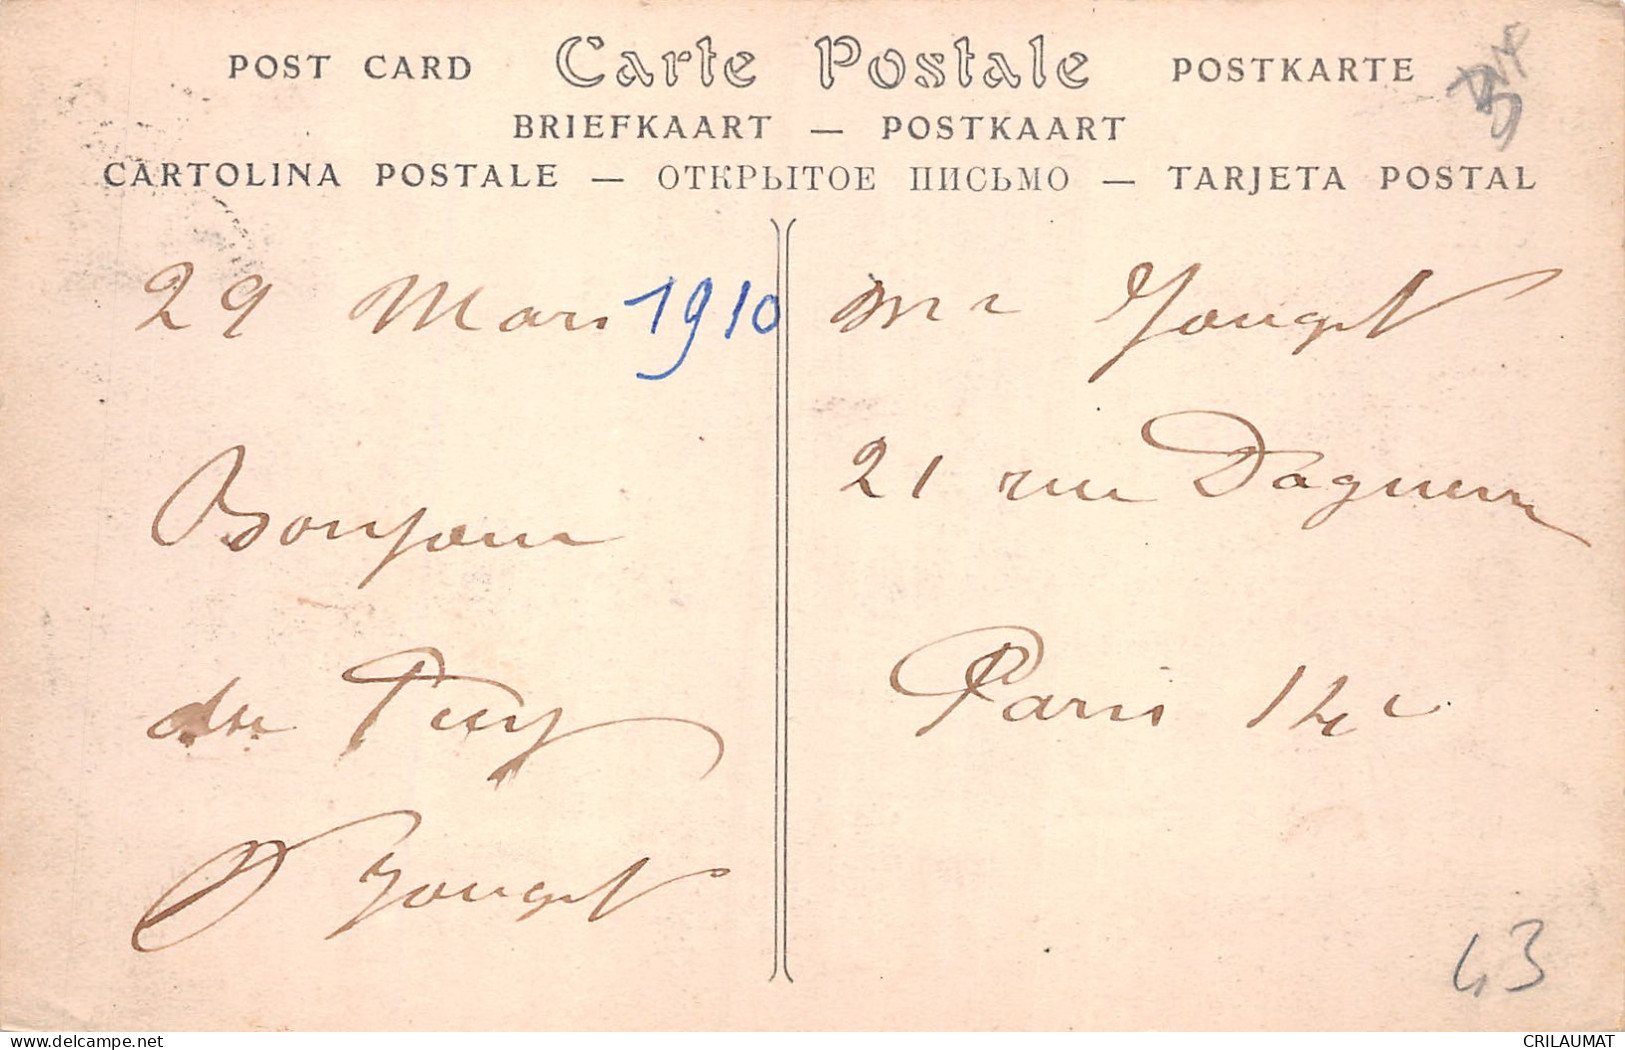 POST CARD Carte Postale POSTKARTE
BRIEFKAART — POSTKAART
CARTOLINA POSTALE — ОТКРЫТОЕ ПИСЬМО — TARJETA POSTAL
29 Mars 1910
Bonjour
du Puy
Jouget
Mr Jouget
21 rue Daguerre
Paris 14e
43
delcampe.net
CRILAUMAT